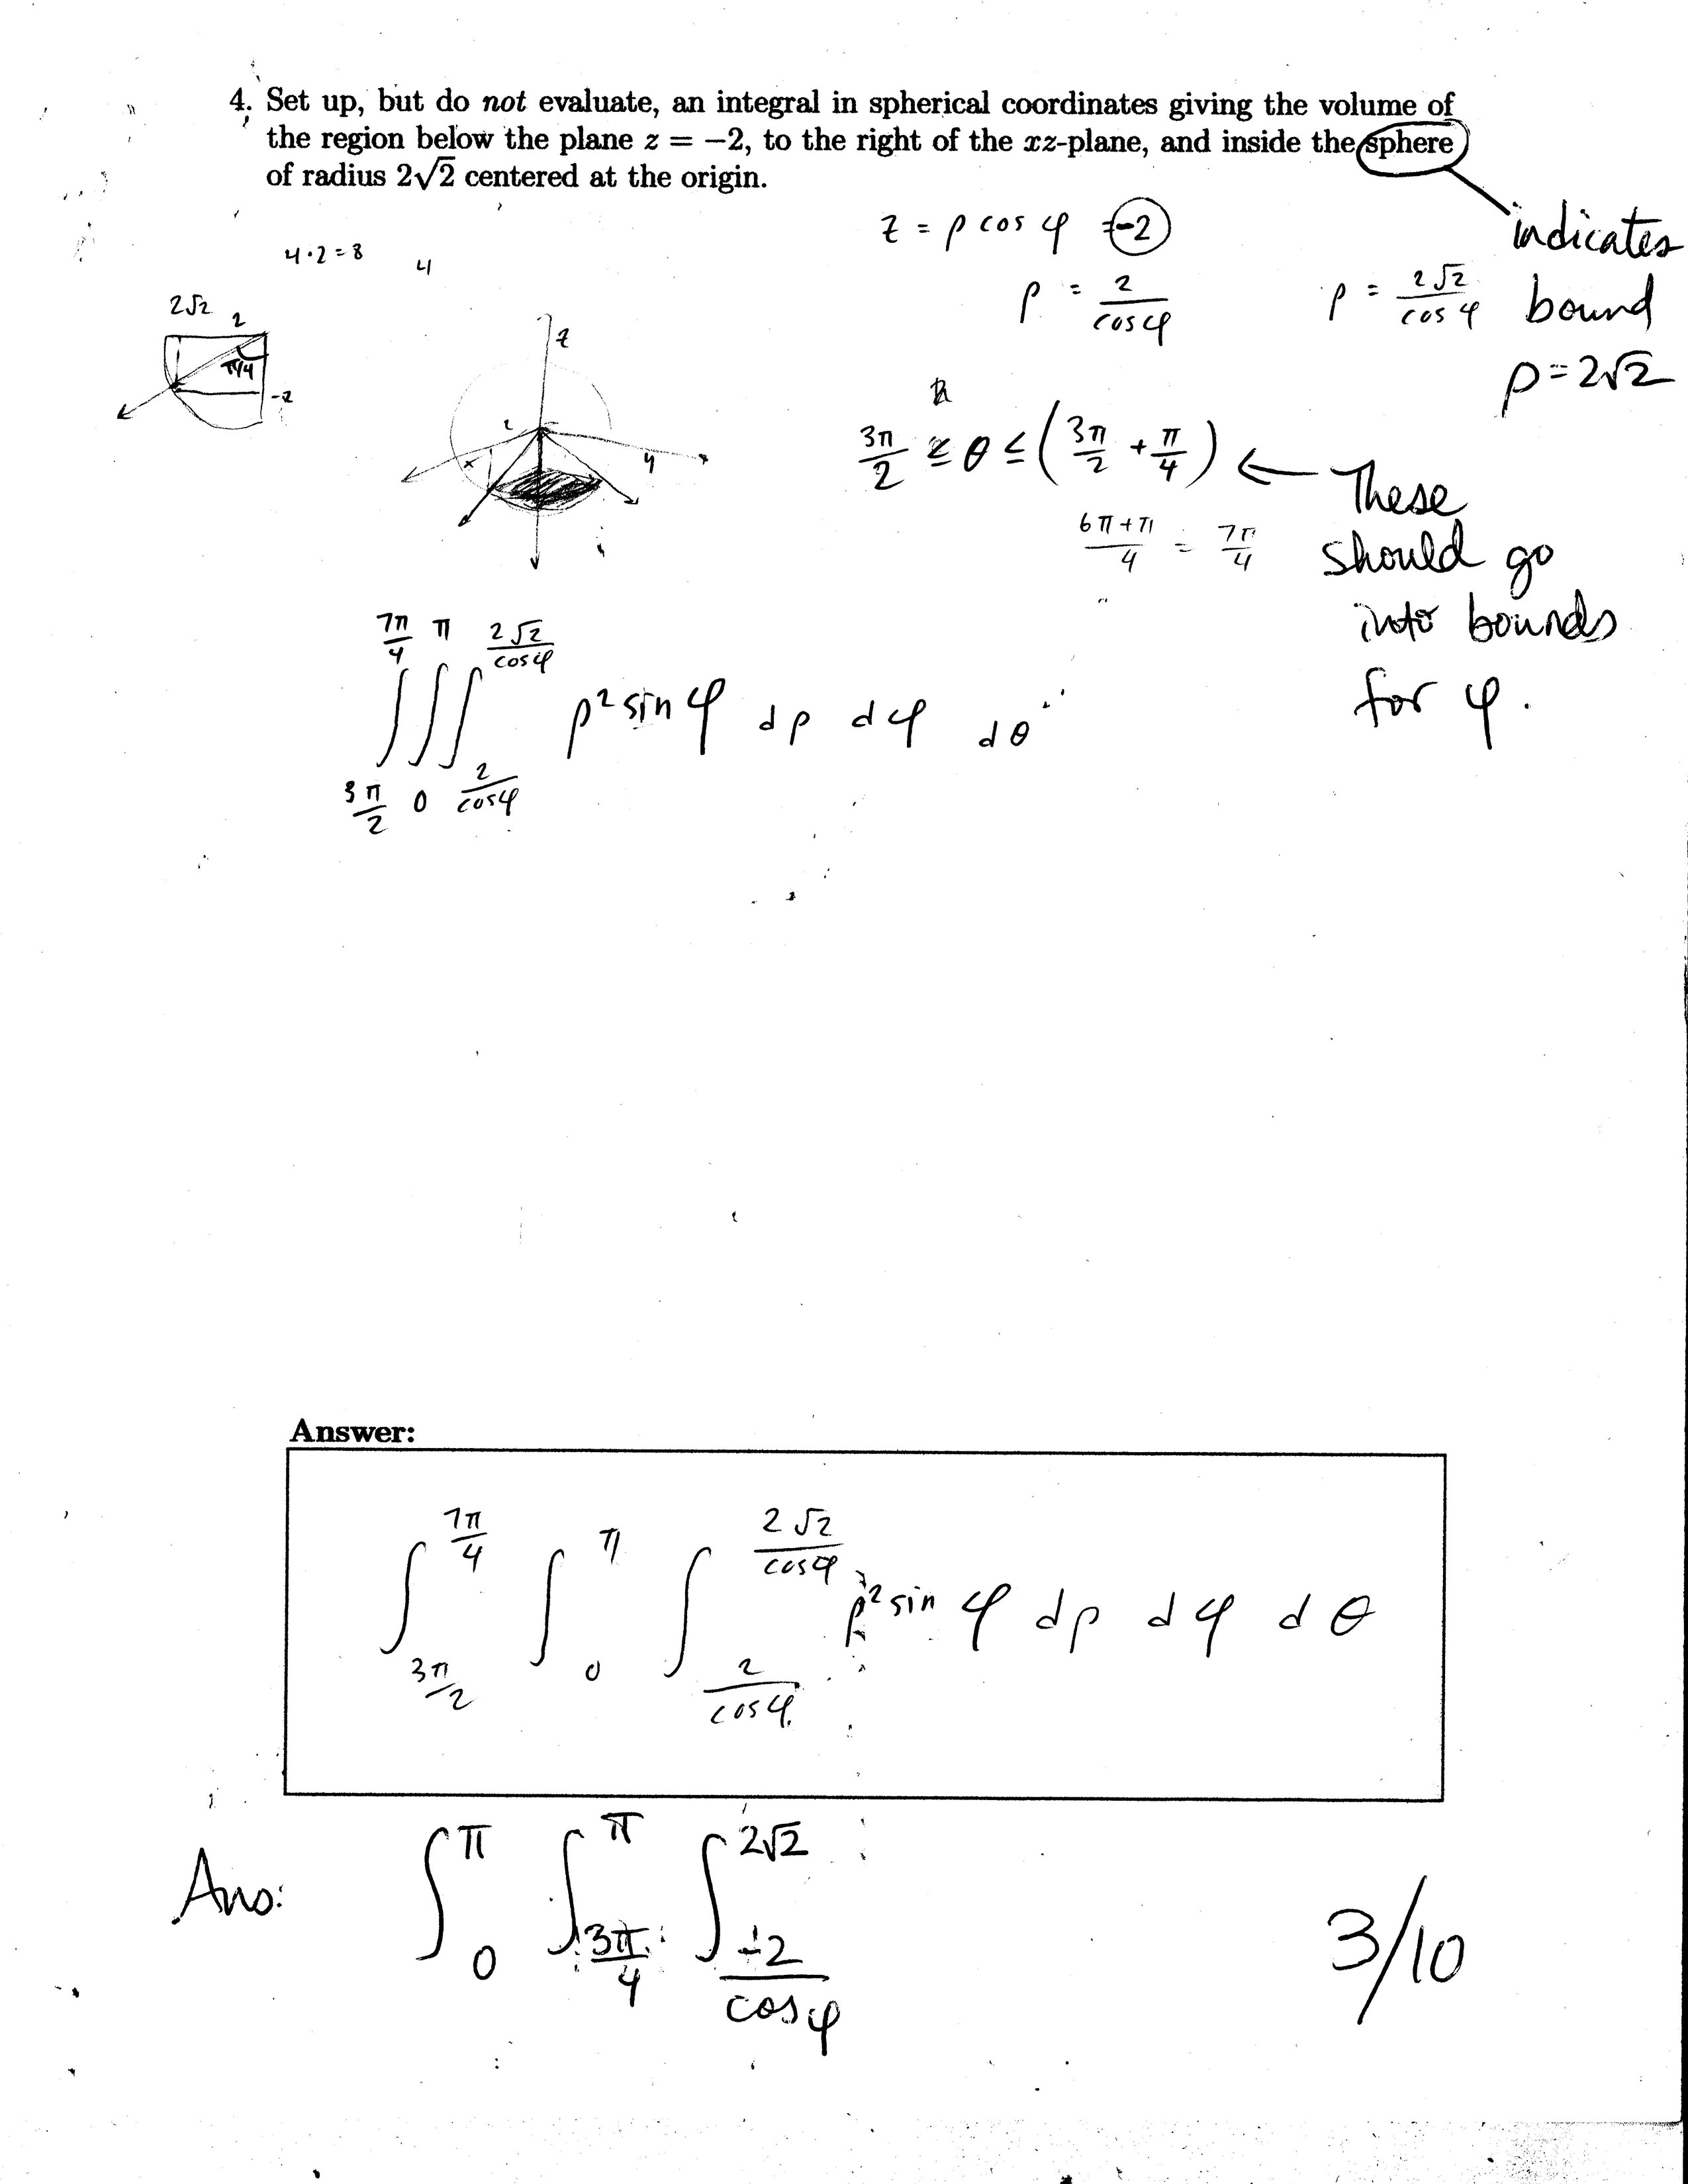 4. Set up, but do not evaluate, an integral in spherical coordinates giving the volume of
the region below the plane z = −2, to the right of the xz-plane, and inside the sphere
of radius 2√2 centered at the origin.
indicates
bound
ρ = 2√2
z = ρ cos φ = -2
ρ = 2/cos φ
ρ = 2√2/cos φ
4·2=8
4
2√2
2
π/4
-2
z
x
y
3π/2 ≤ θ ≤ (3π/2 + π/4) ←
(6π+π)/4 = 7π/4
These
should go
into bounds
for φ.
∫_{3π/2}^{7π/4} ∫_0^π ∫_{2/cos φ}^{2√2/cos φ} ρ² sin φ dρ dφ dθ
Answer:
∫_{3π/2}^{7π/4} ∫_0^π ∫_{2/cos φ}^{2√2/cos φ} ρ² sin φ dρ dφ dθ
Ans: ∫_0^π ∫_{3π/4}^π ∫_{-2/cos φ}^{2√2}
3/10